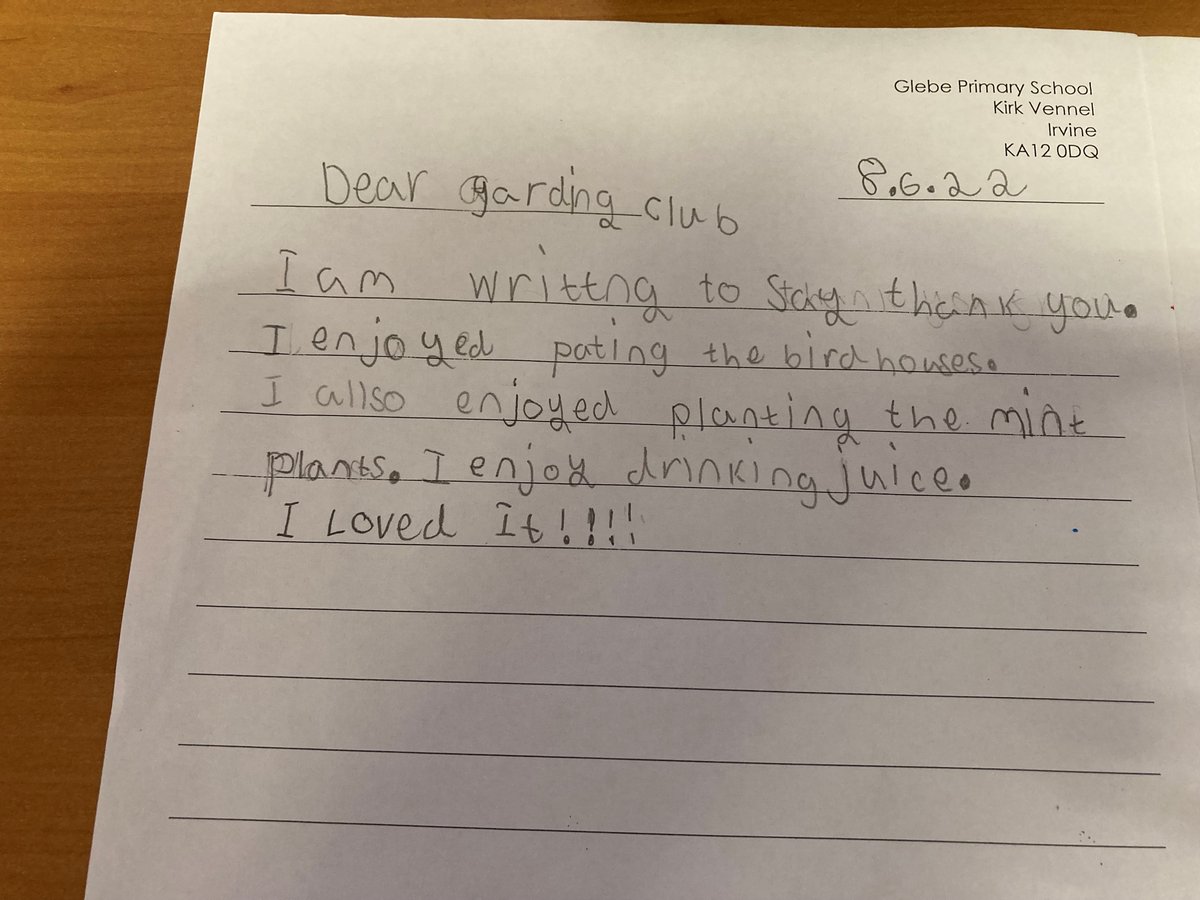 Glebe Primary School
Kirk Vennel
Irvine
KA12 0DQ
8.6.22
Dear garding club
I am writtng to say thank you.
I enjoyed pating the bird houses.
I allso enjoyed planting the mint
plants. I enjoy drinking juice.
I Loved It!!!!